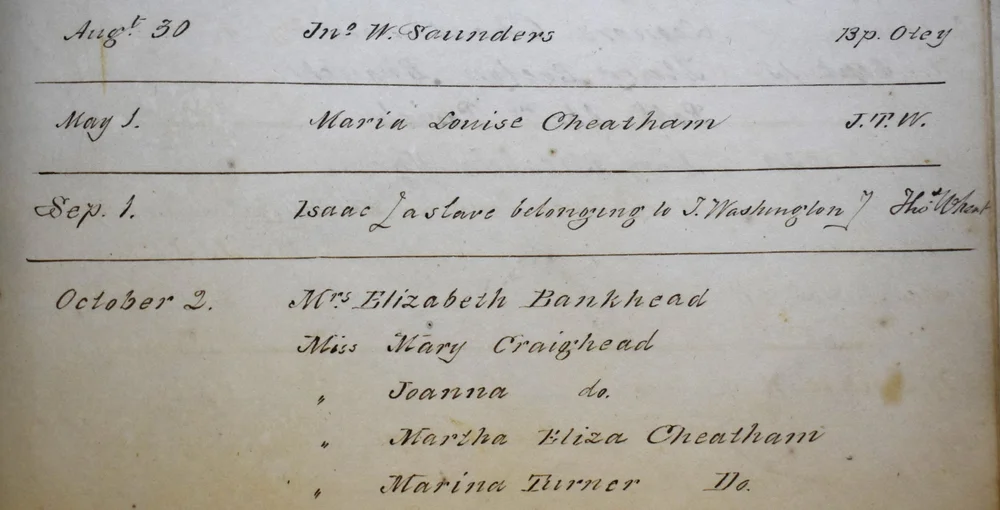 Augt. 30 Jno W. Saunders Bp. Otey
May 1. Maria Louise Cheatham J.T.W.
Sep. 1. Isaac [a slave belonging to T. Washington] Thos
October 2. Mrs. Elizabeth Bankhead
Miss Mary Craighead
" Joanna do.
" Martha Eliza Cheatham
" Marina Turner Do.